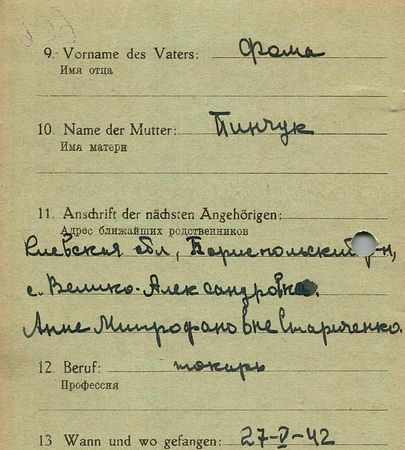 9. Vorname des Vaters: Фома
Имя отца
10. Name der Mutter: Пинчук
Имя матери
11. Anschrift der nächsten Angehörigen:
Адрес ближайших родственников
Киевская обл, Бориспольский р-н,
с. Велико-Александровка.
Анне Митрофановне Стариченко.
12. Beruf: токарь
Профессия
13 Wann und wo gefangen: 27-V-42